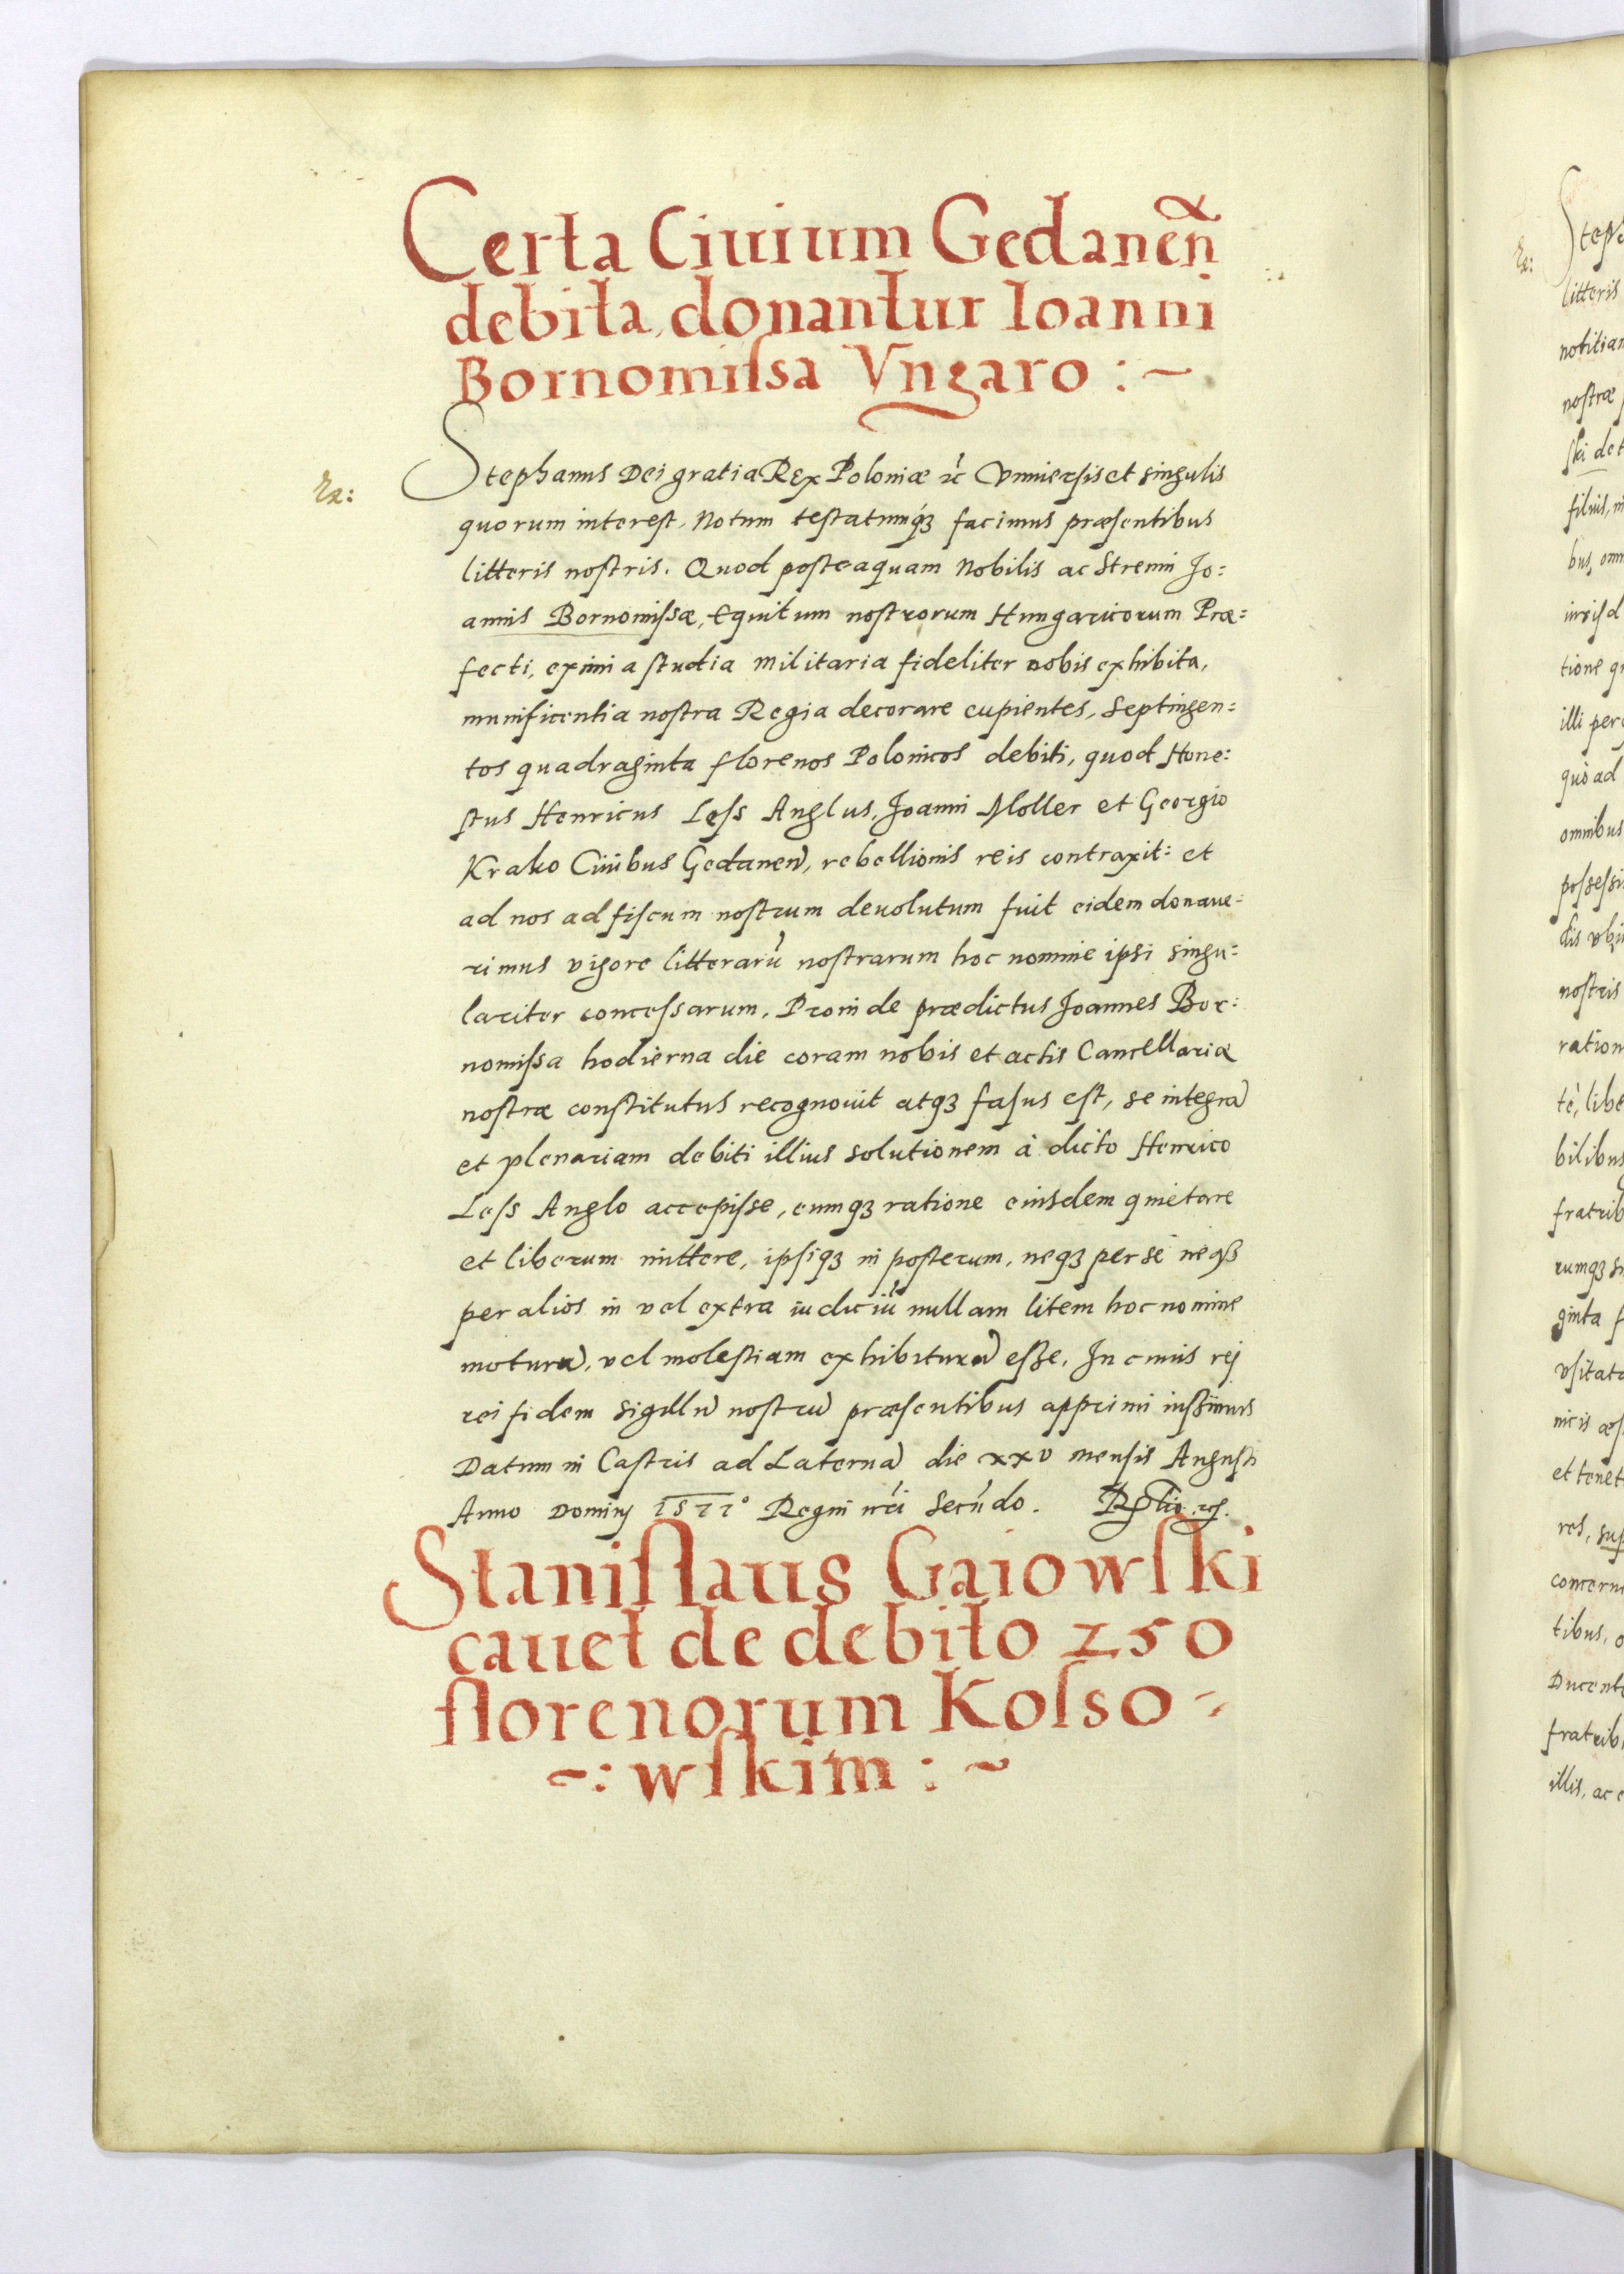 Certa Ciuium Gedaneñ
debita, donantur Ioanni
Bornomiſsa Vngaro : ~
Stephanus Dei gratia Rex Poloniæ ꝛc Vniuersis et singulis
quorum interest. Notum testatumq́ꝫ facimus præsentibus
litteris nostris. Quod posteaquam Nobilis ac Strenui Jo:
annis Bornomiſsæ, Equitum nostrorum Hungaricorum Præ:
fecti, eximia studia militaria fideliter nobis exhibita,
munificentia nostra Regia decorare cupientes, Septingen:
tos quadraginta florenos Polonicos debiti, quod Hone:
stus Henricus Leſs Anglus, Joanni Moller et Georgio
Krako Ciuibus Gedanen̄, rebellionis reis contraxit: et
ad nos ad fiscum nostrum deuolutum fuit eidem donaue:
rimus vigore litterarū nostrarum hoc nomine ipsi singu:
lariter conceſsarum. Proinde prædictus Joannes Bor:
nomiſsa hodierna die coram nobis et actis Cancellariæ
nostræ constitutus recognouit atqꝫ faſus est, se integrā
et plenariam debiti illius solutionem à dicto Henrico
Leſs Anglo accepiſse, eumqꝫ ratione eiusdem quietare
et liberum mittere, ipsiqꝫ in posterum, neqꝫ per se neqꝫ
per alios in vel extra iudiciū nullam litem hoc nomine
moturū, vel molestiam exhibiturū eſse. In cuius rej
rei fidem sigillū nostrū præsentibus apprimi iuſsimus
Datum in Castris ad Laternā die xxv mensis Augusti
Anno Dominj 1577° Regni nr̄i Secūdo.
Staniſlaus Gaiowſki
cauet de debito 250
florenorum Koſso -
~: wſkim : ~
Ra: